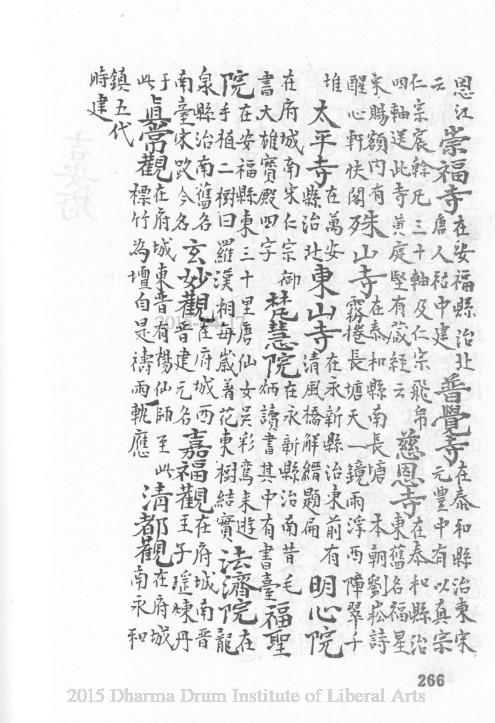 恩江云崇福寺在安福縣治北唐人祐中建普覺寺在泰和縣治東宋元豐中有以真宗
仁宗宸翰凡三十軸及仁宗飛帛四軸送此寺黃庭堅有藏經云慈恩寺在泰和縣治東舊名福星
宋賜額內有醒心軒快閣殊山寺在泰和縣南長塘本朝劉崧詩霧捲長塘天一鏡雨浮西障翠千
堆太平寺在萬安縣治北東山寺在永新縣治東前有清風橋解縉題扁明心院
在府城南宋仁宗御書大雄寶殿四字梵慧院在永新縣治南昔毛炳讀書其中有書臺福聖
院在安福縣東三十里唐仙女吳彩鸞來遊手植二樹曰羅漢相每歲着花東樹結實法濟院在龍
泉縣治南舊名南臺宋改今名玄妙觀在府城西晉建元名嘉福觀在府城南晉王子瑤煉丹
于此真常觀在府城東晉有楊仙師至此標竹為壇自是禱雨輒應清都觀在府城南永和
鎮五代時建
266
2015 Dharma Drum Institute of Liberal Arts